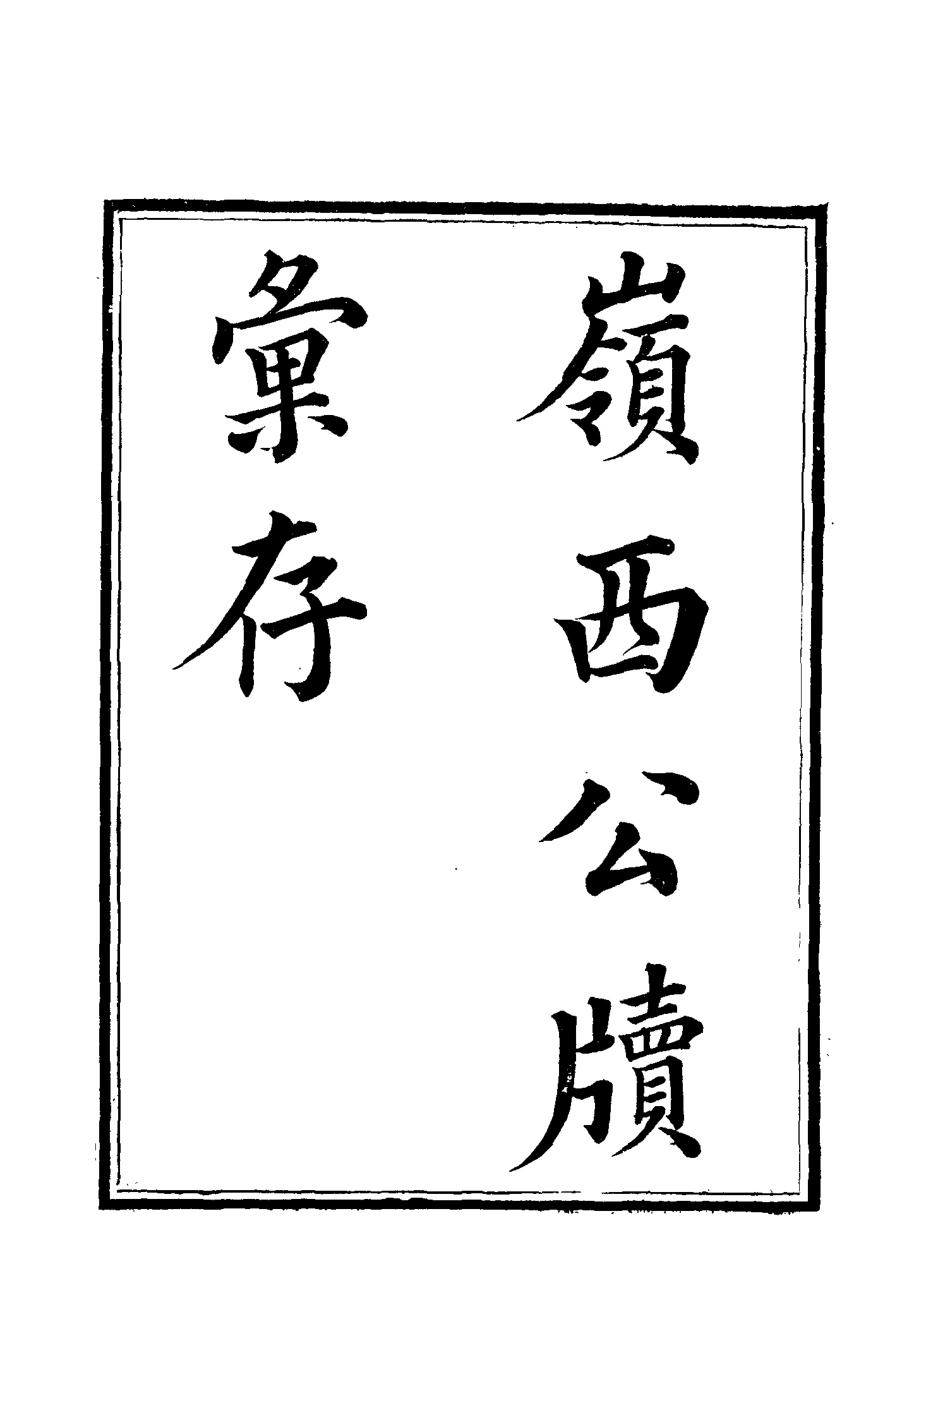 嶺西公牘
彙存